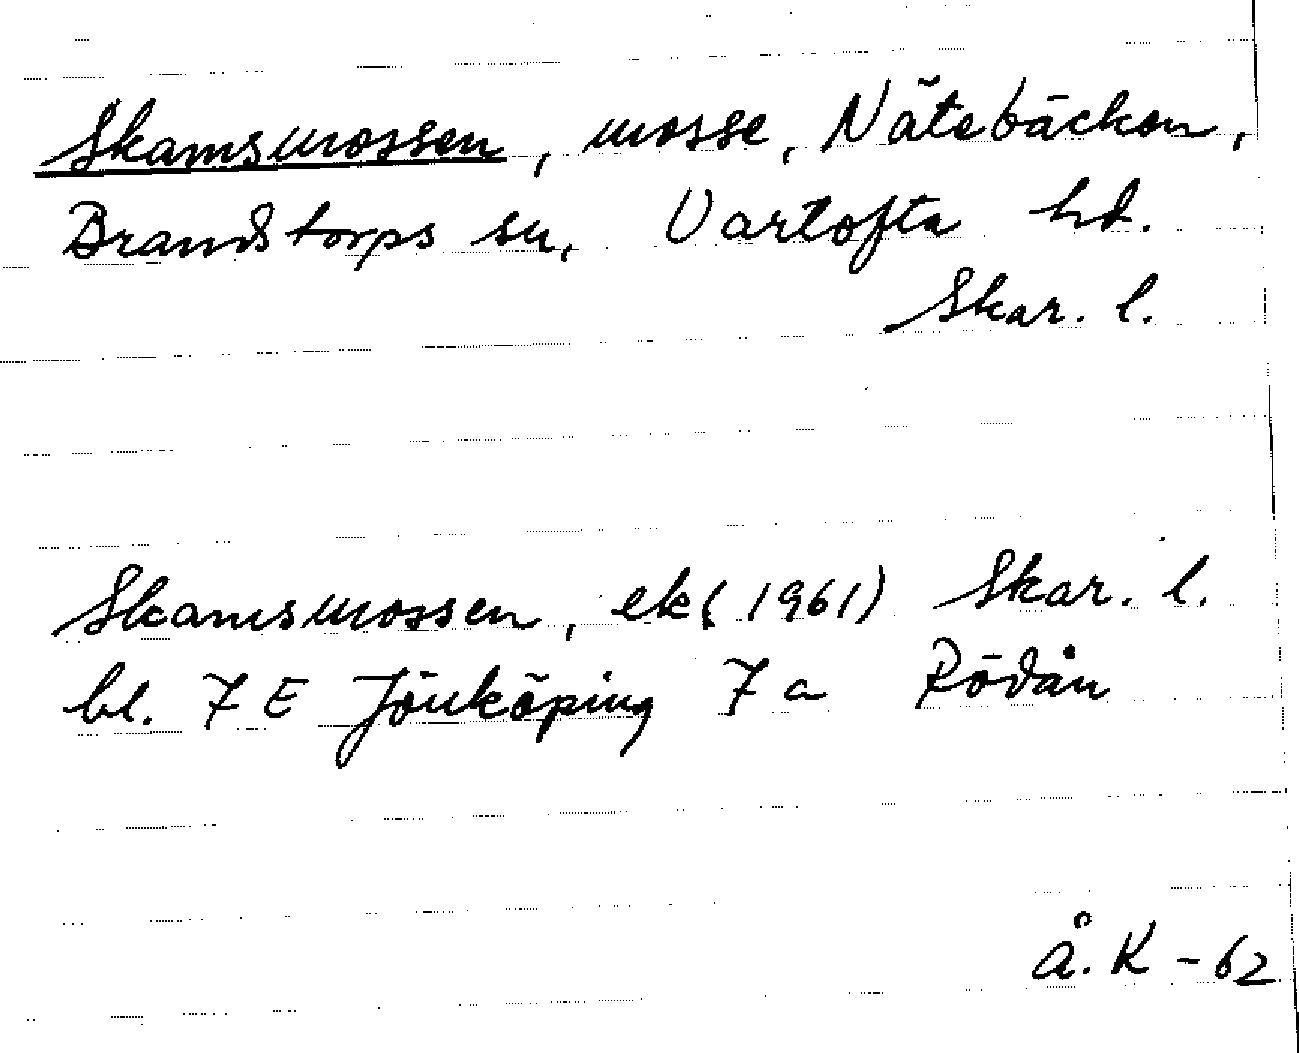 Skamsmossen, mosse, Nätebäcken,
Brandstorps sn, Vartofta hd.
Skar. l.
Skamsmossen, ek (1961) Skar. l.
bl. 7 E Jönköping 7 a Rödån
Å. K - 62